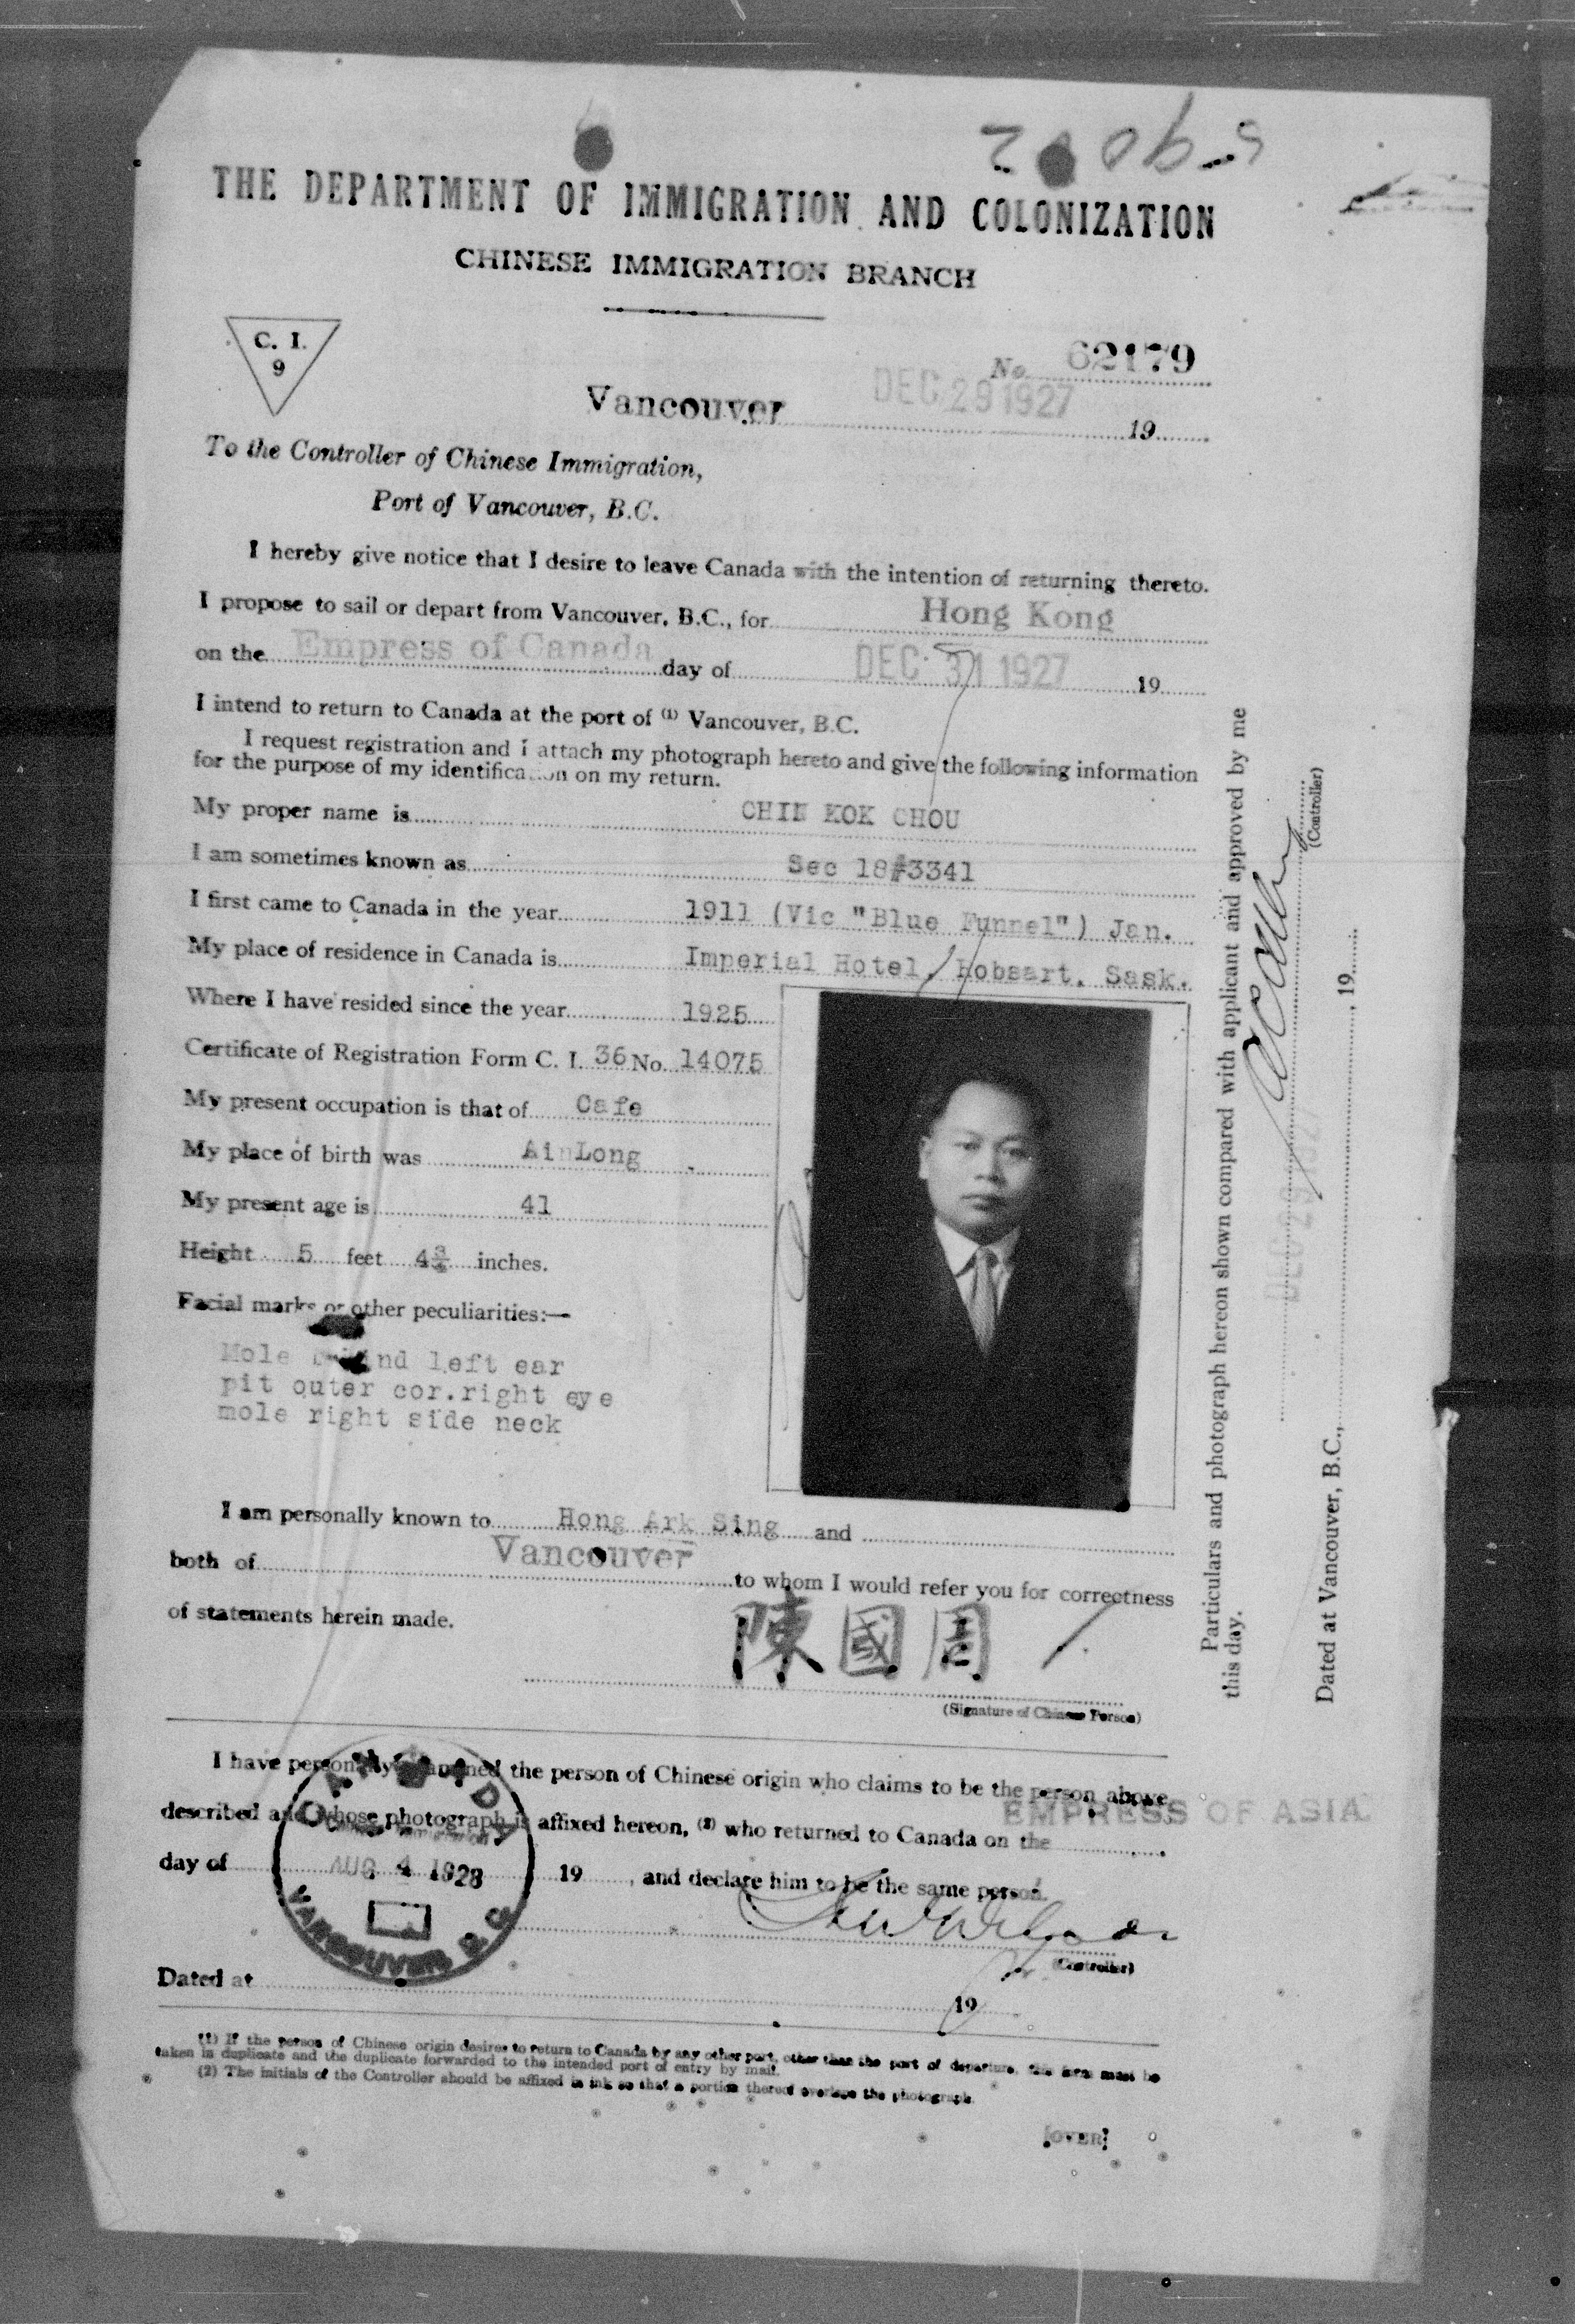 THE DEPARTMENT OF IMMIGRATION AND COLONIZATION
CHINESE IMMIGRATION BRANCH
C. I.
9
No. 62179
Vancouver DEC 29 1927 19
To the Controller of Chinese Immigration,
Port of Vancouver, B.C.
I hereby give notice that I desire to leave Canada with the intention of returning thereto.
I propose to sail or depart from Vancouver, B.C., for Hong Kong
on the Empress of Canada day of DEC 31 1927 19
I intend to return to Canada at the port of (1) Vancouver, B.C.
I request registration and I attach my photograph hereto and give the following information
for the purpose of my identification on my return.
My proper name is CHIN KOK CHOU
I am sometimes known as Sec 18#3341
I first came to Canada in the year 1911 (Vic "Blue Funnel") Jan.
My place of residence in Canada is Imperial Hotel, Hobsart, Sask.
Where I have resided since the year 1925
Certificate of Registration Form C. I. 36 No. 14075
My present occupation is that of Cafe
My place of birth was AinLong
My present age is 41
Height 5 feet 4¾ inches.
Facial marks or other peculiarities:—
Mole behind left ear
pit outer cor.right eye
mole right side neck
I am personally known to Hong Ark Sing and
both of Vancouver to whom I would refer you for correctness
of statements herein made.
陳國周
(Signature of Chinese Person)
I have personally examined the person of Chinese origin who claims to be the person above
described and whose photograph is affixed hereon, (2) who returned to Canada on the
EMPRESS OF ASIA
day of AUG 4 1928 19 , and declare him to be the same person.
CANADA
VANCOUVER B.C.
(Controller)
Dated at 19
(1) If the person of Chinese origin desires to return to Canada by any other port, other than the port of departure, this form must be
taken in duplicate and the duplicate forwarded to the intended port of entry by mail.
(2) The initials of the Controller should be affixed in ink so that a portion thereof overlaps the photograph.
[OVER]
Particulars and photograph hereon shown compared with applicant and approved by me
this day.
DEC 29 192
(Controller)
Dated at Vancouver, B.C., , 19